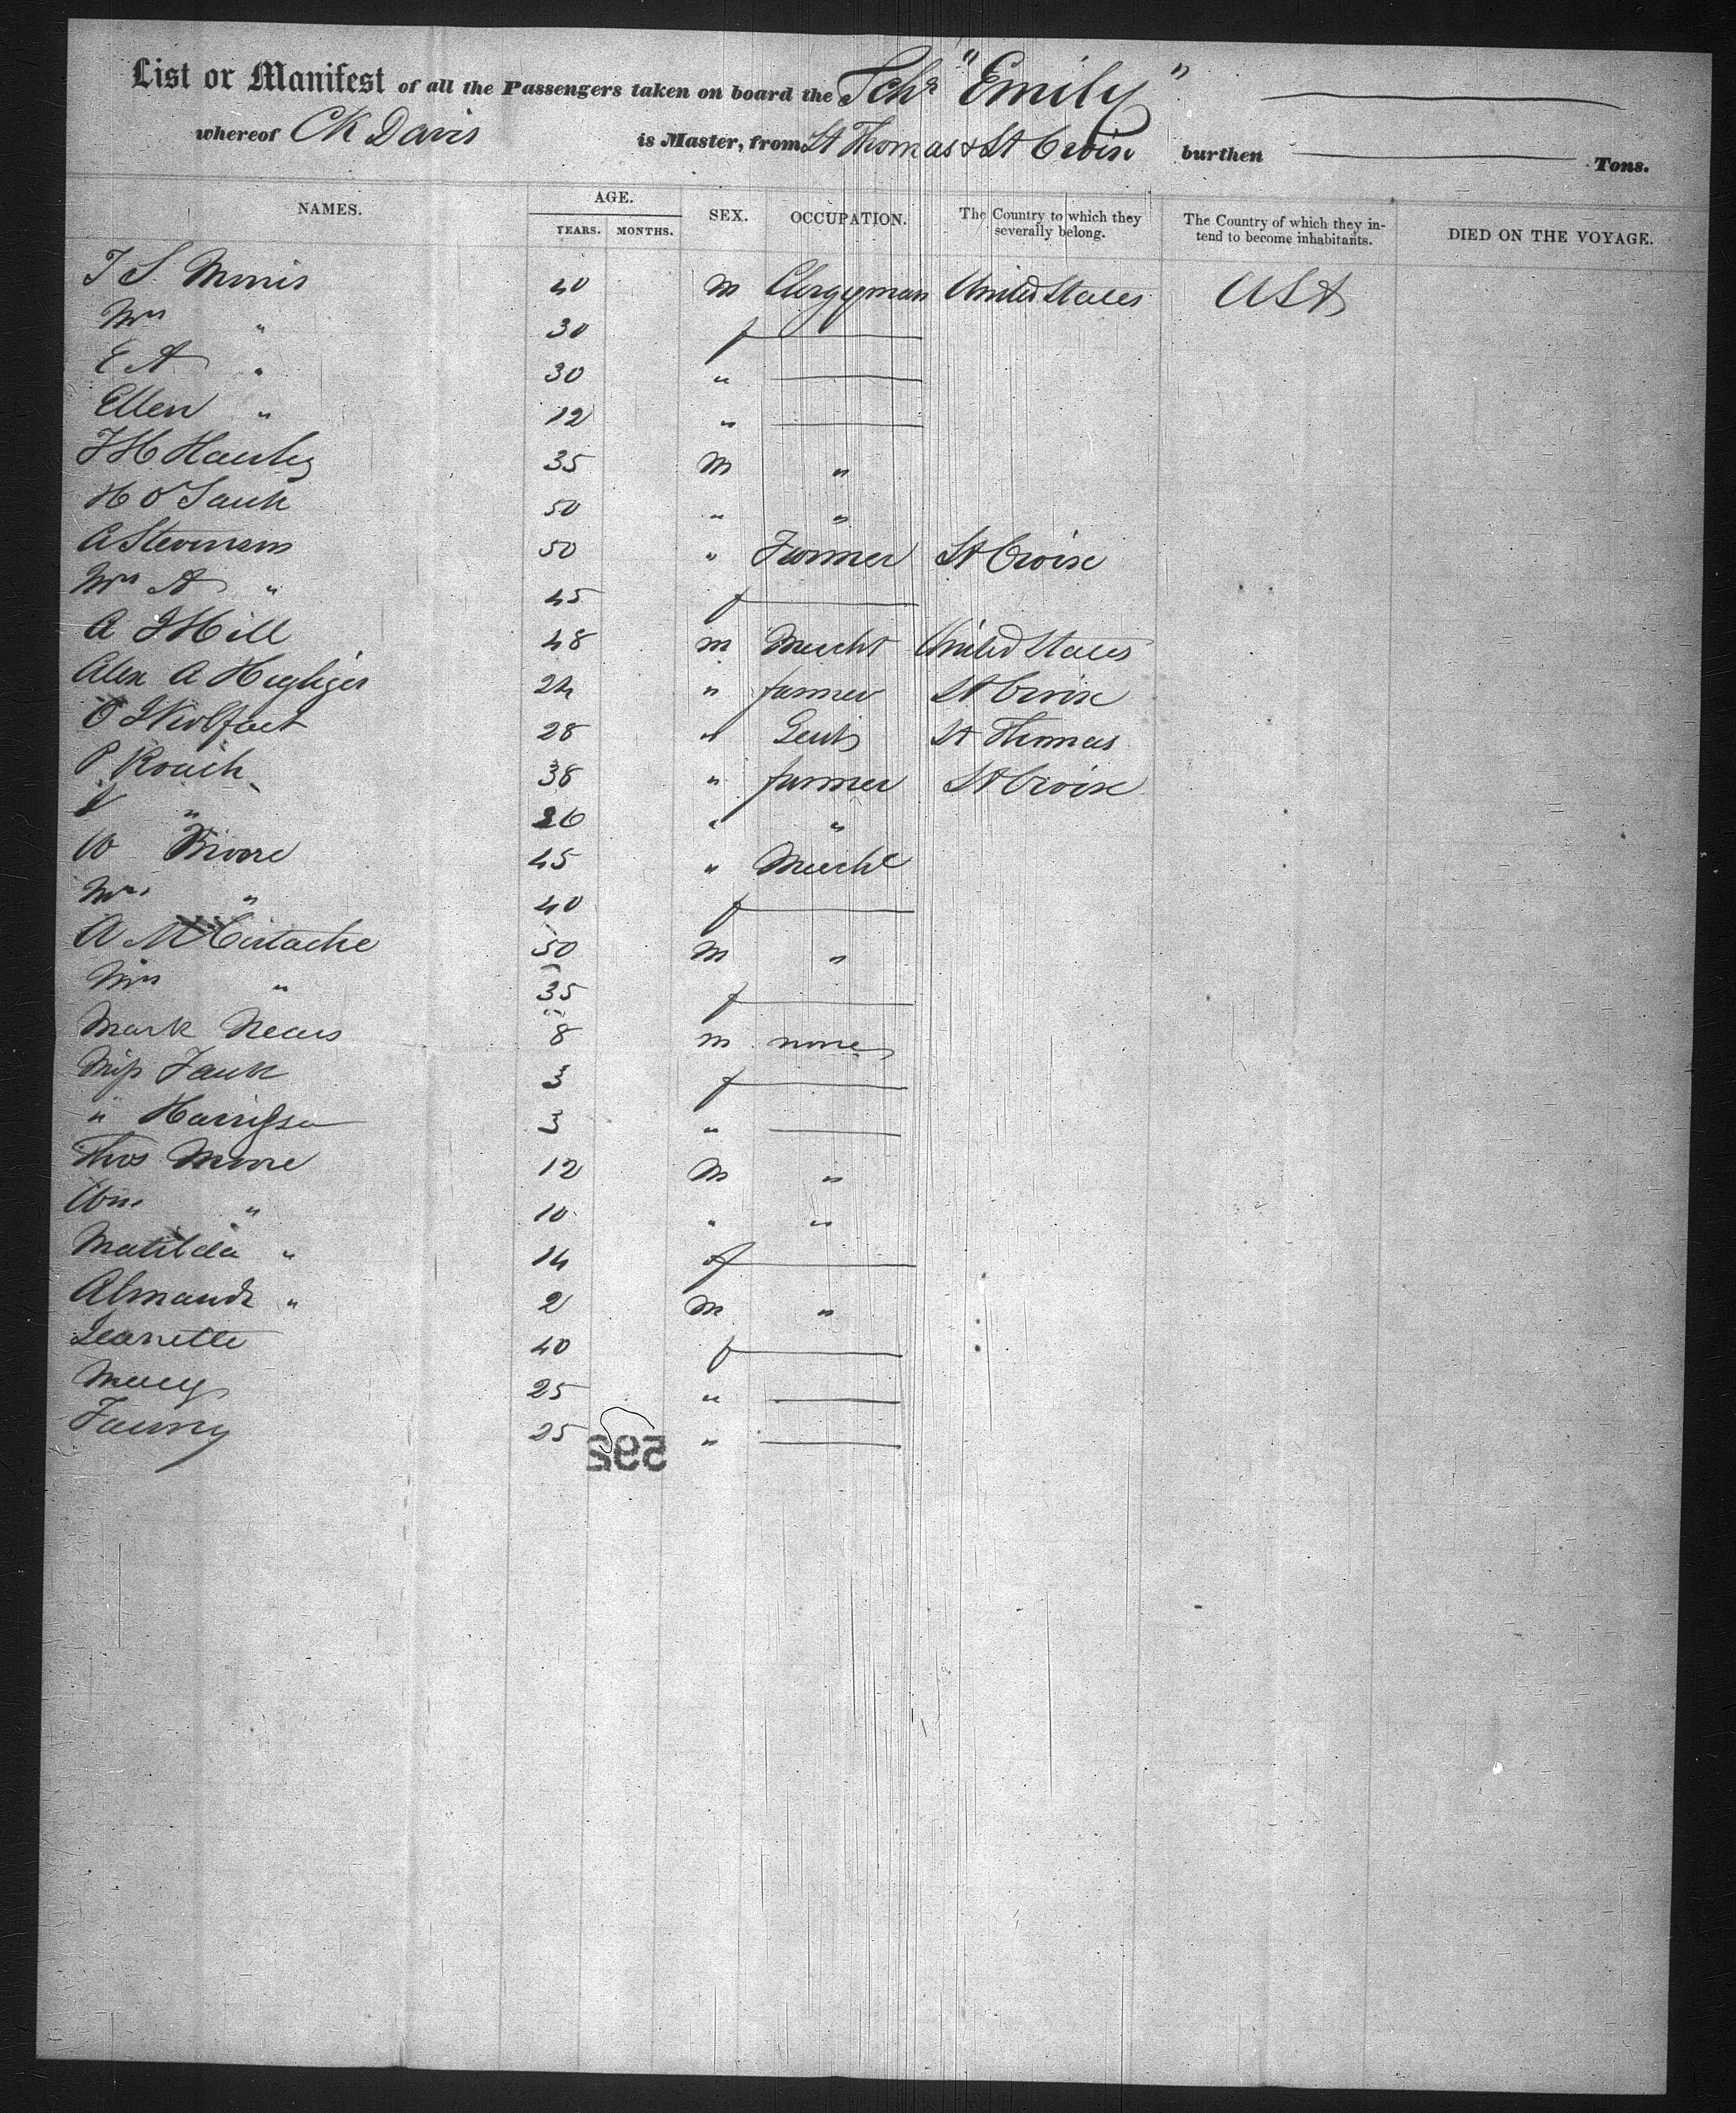 List or Manifest of all the Passengers taken on board the Schr "Emily"
whereof CK Davis is Master, from St Thomas & St Croix burthen Tons.
NAMES. AGE. YEARS. MONTHS. SEX. OCCUPATION. The Country to which they severally belong. The Country of which they intend to become inhabitants. DIED ON THE VOYAGE.
40 m Clergyman United States
Mrs " 30 f
E A " 30 "
Ellen " 12 "
35 M "
50 " "
50 " Farmer St Croix
Mrs A " 45 f
A J Hill 48 m Mercht United States
Alex A 24 " farmer St Croix
28 " St Thomas
P Roach 38 " farmer St Croix
" 26 " "
W Moore 45 " Mercht
Mrs " 40 f
A M 50 m "
Mrs " 35 f
Mark 8 m none
Miss 3 f
" 3 "
Thos Moore 12 M "
Wm " 10 " "
Matilda " 14 f
" 2 M "
Jeanette 40 f
25 "
Fanny 25 "
592